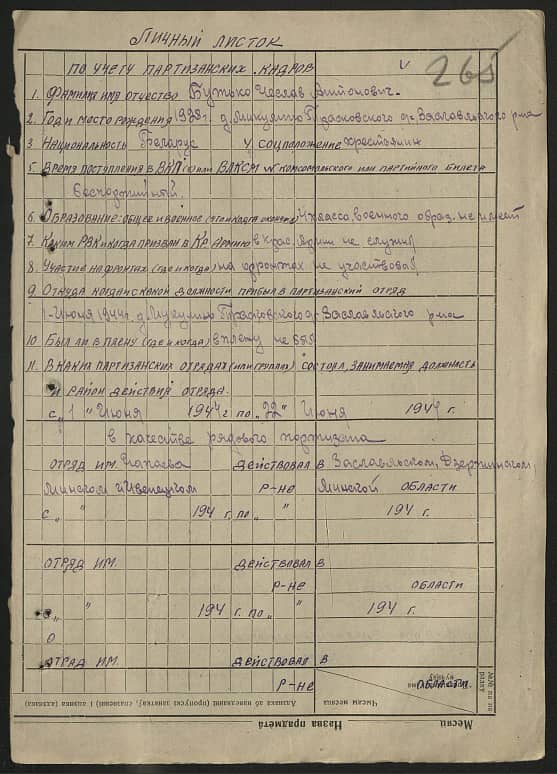 Личный листок
по учету партизанских кадров
V 265
1. Фамилия имя отчество Бутько Чеслав Антонович.
2. Год и место рождения д. Микулино с/с Заславльского р-на
3. Национальность Беларус 4. Соцположение крестьянин
5. Время поступления в ВКП(б) или ВЛКСМ № комсомольского или партийного билета
беспартийный
6. Образование: общее и военное (что и когда окончил) 4 класса, военного образ. не имеет
7. Каким РВК и когда призван в Кр. Армию в крас. Армии не служил
8. Участие на фронтах (где и когда) на фронтах не участвовал
9. Откуда когда и с какой должности прибыл в партизанский отряд
1-Июня 1944 г. д. Микулино с/с Заславльского р-на
10. Был ли в плену (где и когда) в плену не был
11. В каких партизанских отрядах (или группах) состоял, занимаемая должность
и район действия отряда.
с „1" Июня 1944 г по „22" Июня 1944 г.
в качестве рядового партизана
отряд им. Чапаева действовал в Заславльском, Дзержинском,
Минском и Ивенецком р-не Минской области
с „ " 194 г. по „ " 194 г.
отряд им. действовал в
р-не области
с „ " 194 г. по „ " 194 г.
о
отряд им. действовал в
р-не области
Чысты месяца
Месяц Назва прадмета